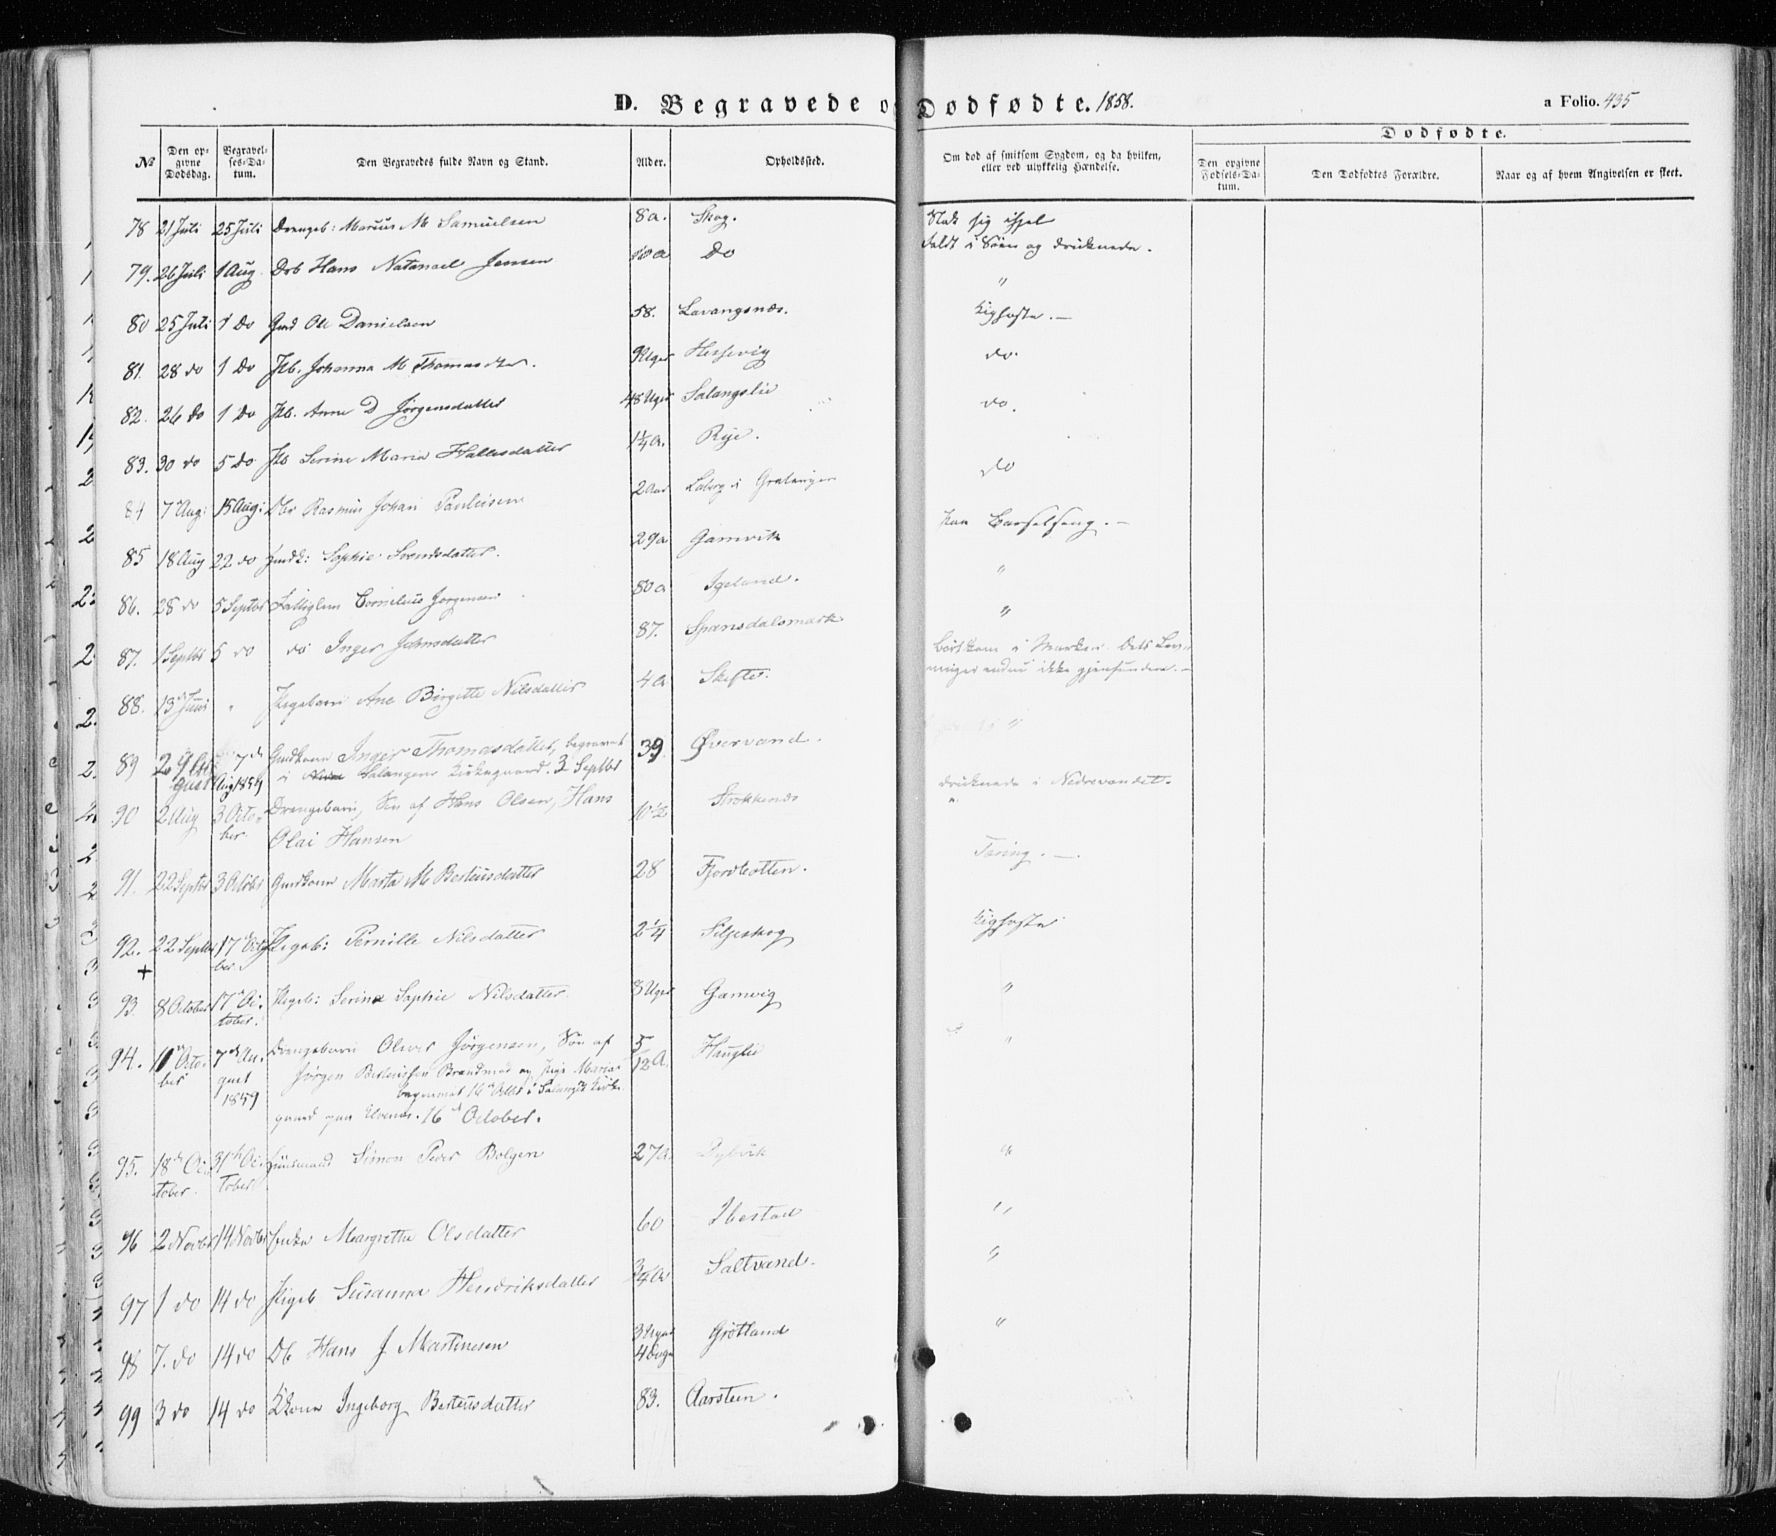 D. Begravede o Dødfødte. 1858.
a Folio. 435
No
Den opgivne Dødsdag.
Begravelses-Datum.
Den Begravedes fulde Navn og Stand.
Alder.
Opholdssted.
Om død af smitsom Sygdom, og da hvilken, eller ved ulykkelig Hændelse.
Dødfødte.
Den opgivne Fødsels-Datum.
Den Dødfødtes Forældre.
Naar og af hvem Angivelsen er skeet.
78 21 Juli 25 Juli Drengeb: Marius M Samuelsen 8a. Skog. sig
faldt i Søen og druknede.
79. 26 Juli 1 Aug Drb Hans Natanael Jensen 10a Do
"
80 25 Juli 1 Do Gmd Ole Danielsen 58. Lavangsnæs.
Kighoste. —
81. 28 do 1 Do Johanna M. Thomasdtr. 9 Uger Hessevig
do.
82. 26 do 1 Do Anne D Jørgensdatter 48 Uger Salangslie
do.
83. 30 do 5 Do Serine Maria Hallesdatter 1¼a. Rye.
do
84 7 Aug: 15 Aug: Rasmus Johan Paulsen 2 Aar Laberg i Gratangen
paa Barselseng. —
85 18 Aug 22 do Sophie Svendsdatter. 29a Gamvik
"
86. 28 do 5 Septbr Fattiglem Cornelius Jørgensen 80a Igeland.
"
87. 1 Septbr 5 do do Inger Johnsdatter 87. Spansdalsmark
Bortkom i Marken. Dets Levninger endnu ikke gjenfundne. —
88. 13de Juni " Pigebarn Ane Birgitte Nilsdatter 4a Skofter.
"
89 7de Aug 1859 Gmdkone Inger Thomasdatter, begravet 39 Øvervand.
i Salangens Kirkegaard. 3 Septbr
druknede i Nedrevandet.
90 2 Aug 3 October Drengebarn, Søn af Hans Olsen, Hans 10½ Strokkenæs
Olai Hansen
Tæring. —
91. 22 Septbr 3 Octbr Gmdkone Marta M Berteusdatter 28 Fjordbotten.
Kighoste
92. 22 Septbr 17de October Pigeb: Pernille Nilsdatter 2¼ Siljeskog
+
"
93. 8 October 17de October. Pigeb: Serine Sophie Nilsdatter. 8 Uger Gamvig
"
94. 11de October 7de August 1859 Drengebarn Oluf Jørgensen, Søn af 5/12 A. Hauglie
Jørgen Berteussen Brandmo og Pige Maria
begravet 16de Octbr i Salangs Kirke
gaard paa Elvenæs. 16de October.
95. 18de October. 31te October Simon Peder Bolgen 27a. Dyrvik
"
96 2 Novbr 14 Novbr Enke Margrethe Olsdatter 60 Ibestad
"
97 1 do 14 do Pigeb Susanna Hendriksdatter ¾ Aar Saltvand.
"
98 7. do 14 do Db Hans J Martinesen 3 Uger 4 Dage Grøtland
"
99 3 do 14 do Ingeborg Berteusdatter 83. Aarsteen.